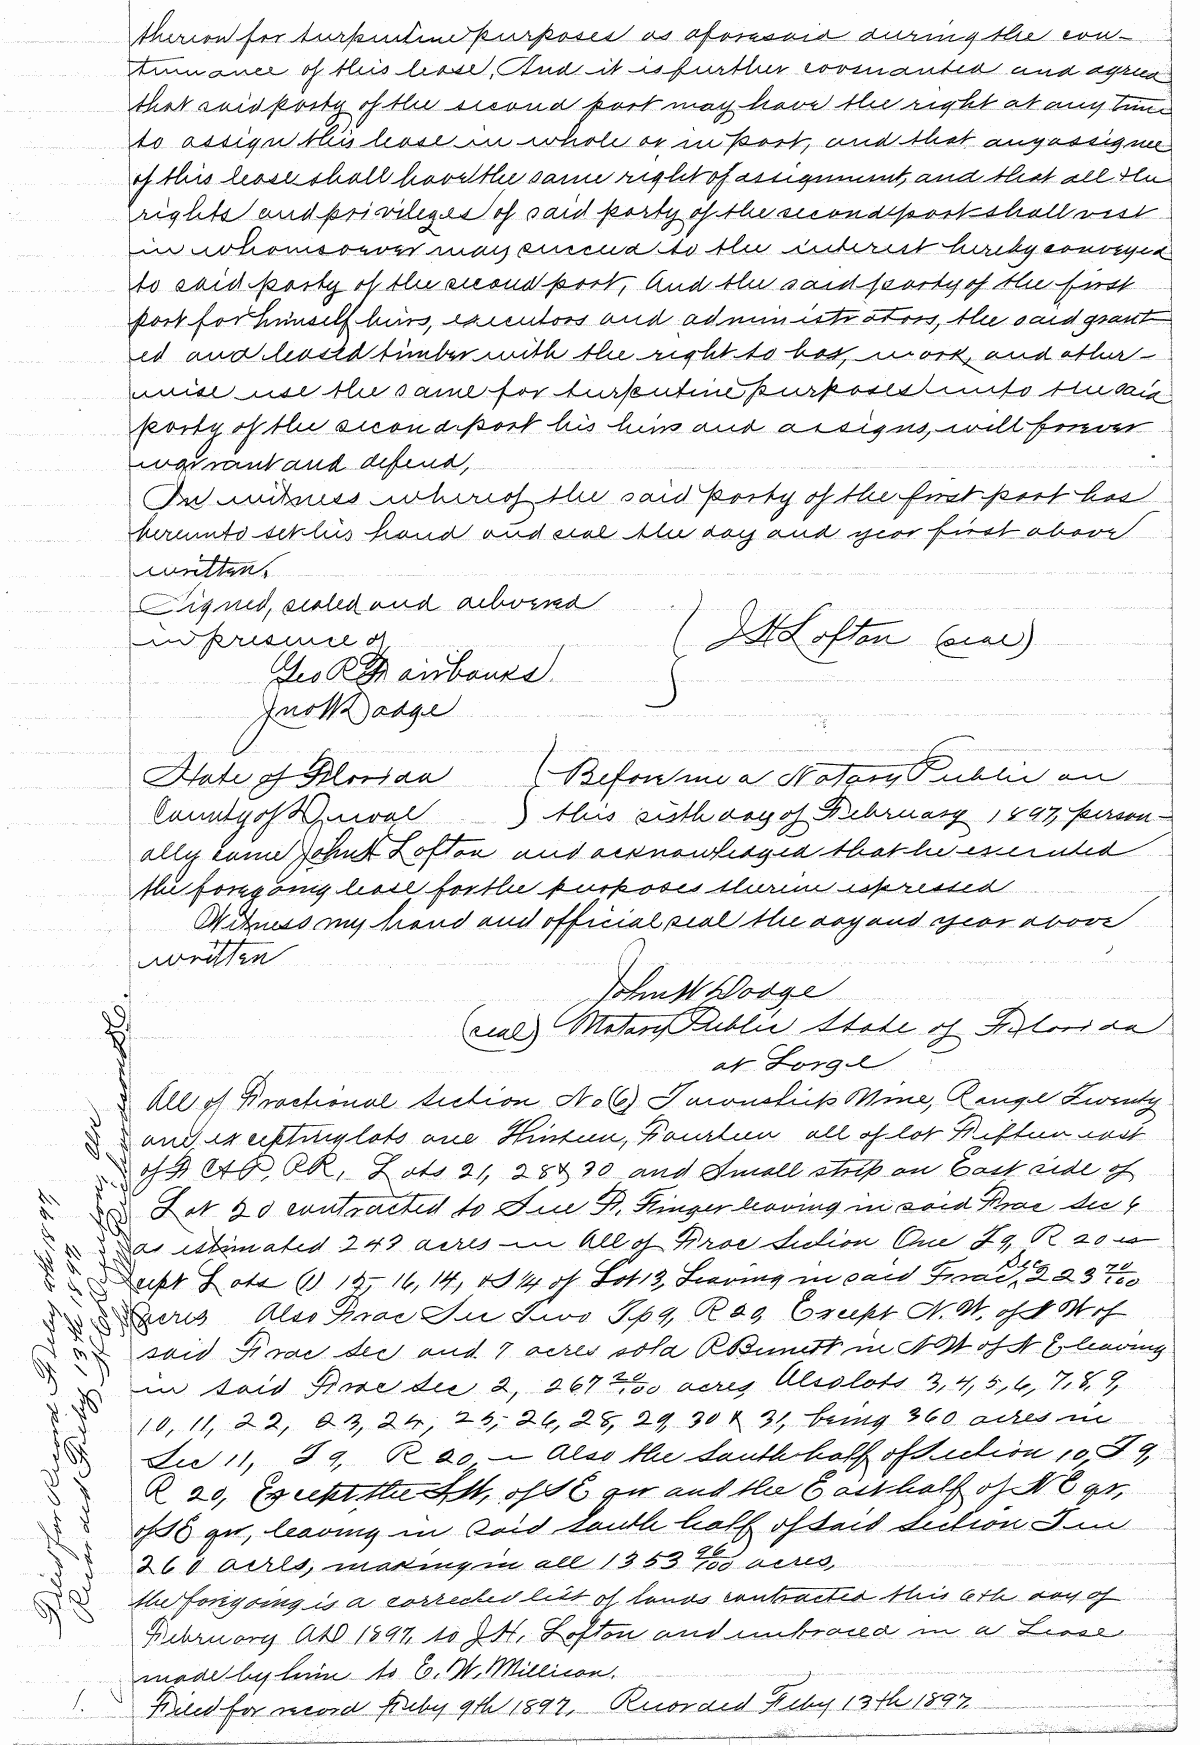 thereon for turpentine purposes as aforesaid during the con-
tinuance of this lease, And it is further covenanted and agreed
that said party of the second part may have the right at any time
to assign this lease in whole or in part, and that any assignee
of this lease shall have the same right of assignment, and that all the
rights and privileges of said party of the second part shall vest
in whomsoever may succeed to the interest hereby conveyed
to said party of the second part, And the said party of the first
part for himself heirs, executors and administrators, the said grant
ed and leased timber with the right to box, work, and other-
wise use the same for turpentine purposes unto the said
party of the second part his heirs and assigns, will forever
warrant and defend,
In witness whereof the said party of the first part has
hereunto set his hand and seal the day and year first above
written.
Signed, sealed and delivered
in presence of
J H Lofton (seal)
Geo R Fairbanks
Jno W Dodge
State of Florida Before me a Notary Public on
County of Duval this sixth day of February 1897, person-
ally came John H Lofton and acknowledged that he executed
the foregoing lease for the purposes therein expressed
Witness my hand and official seal the day and year above
written
John W Dodge
(seal) Notary Public State of Florida
at Large
All of Fractional Section No (6) Township Nine, Range Twenty
one, excepting lots one Thirteen, Fourteen all of lot Fifteen east
of F C & P, RR, Lots 21, 28 & 30 and Small strip on East side of
Lot 20 contracted to Sue F. Finger leaving in said Frac Sec 6
as estimated 249 acres in All of Frac Section One T9, R 20 ex
cept Lots (1) 15, 16, 14, & S 1/4 of Lot 13, Leaving in said Frac, Sec 223 70/100
acres Also Frac Sec Two Tp 9, R 20, Except N.W. of N W of
said Frac sec and 7 acres sold R Bennett in N W of N E leaving
in said Frac Sec 2, 267 20/100 acres Also lots 3, 4, 5, 6, 7, 8, 9,
10, 11, 22, 23, 24, 25, 26, 28, 29, 30 & 31, being 360 acres in
Sec 11, T 9, R 20, - Also the South half of Section 10, T 9,
R 20, Except the S W, of S E qr and the East half of N E qr,
of S E qr, leaving in said South half of said section Ten
260 acres, making in all 1353 96/100 acres,
the foregoing is a corrected list of lands contracted this 6th day of
February AD 1897, to J H. Lofton and embraced in a Lease
made by him to E. W. Millican.
Filed for record Feby 9th 1897, Recorded Feby 13th 1897,
Filed for Record Feby 9th 1897,
Recorded Feby 13th 1897,